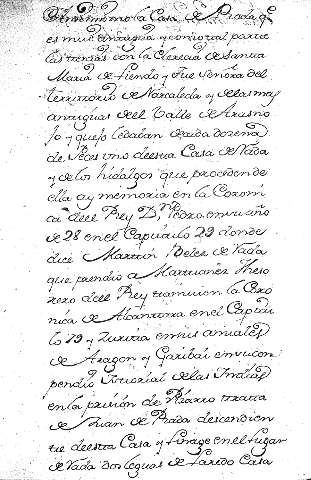 Assimismo la Casa de Prada q.e
es muy antigua y como tral parte
las trensas con la Clerecia de Santa
Maria de Liendo y fue Señora del
territorio de Narcaleda y de las mas
antiguas del Valle de Aras
y que le daban
de estra Casa de Vada
y de los hidalgos que proceden de
ella ay memoria en la Coroni
ca del Rey D.n Pedro en su año
de 28 en el Capitulo 29 donde
dice Martin Velez de Vada
que prendio a Martiañez Theso
rero del Rey tramvien la Coro
nica de Alcantara en el Capitu
lo 19 y Zurita en sus annales
de Aragon y Garibai en su com
pendio Ystorial de las Indias
en la prision de Pizarro tratra
de Juan de Prada descendien
tre de estra Casa y linage en el lugar
de Vada dos leguas de Laredo Casa